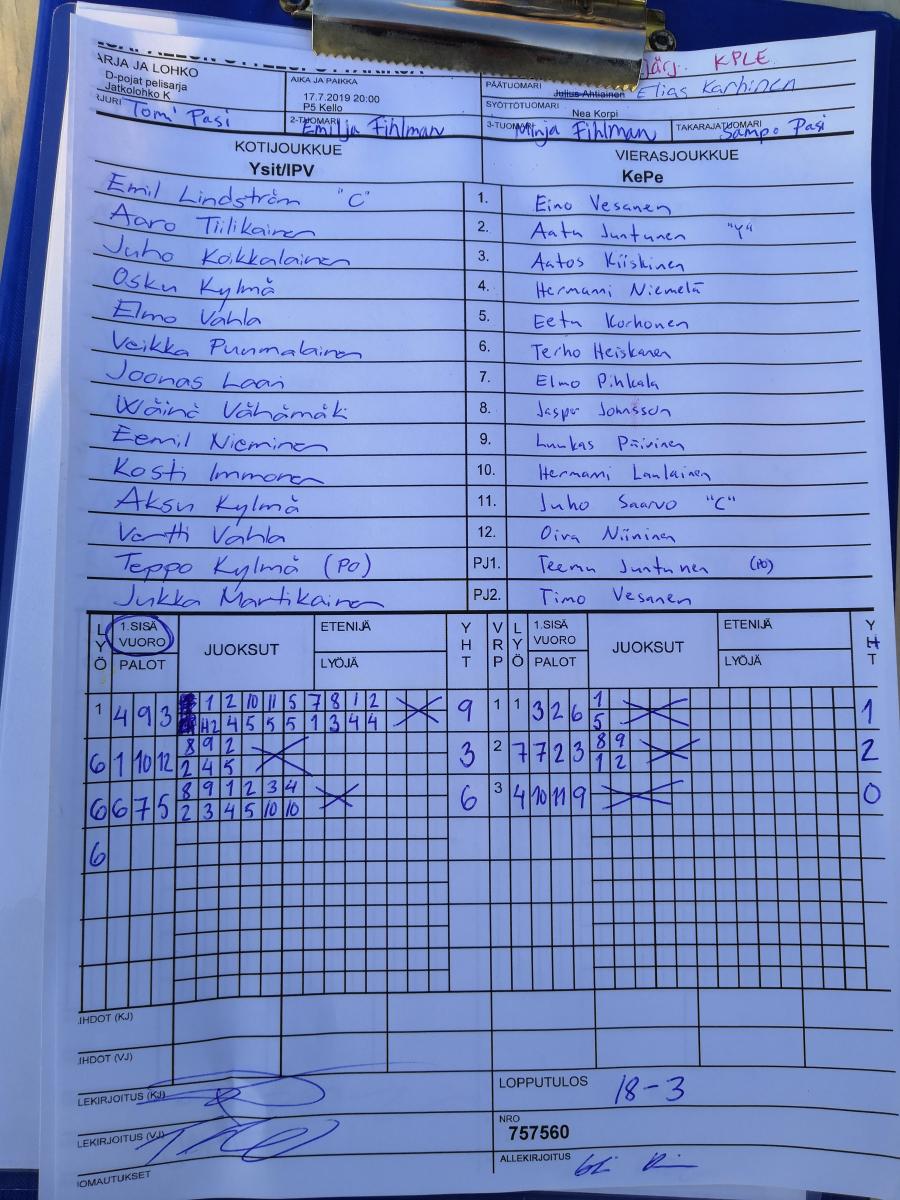 järj. KPLE
ARJA JA LOHKO
D-pojat pelisarja
Jatkolohko K
AIKA JA PAIKKA
17.7.2019 20:00
P5 Kello
PÄÄTUOMARI Julius Ahtiainen Elias Karhinen
SYÖTTÖTUOMARI
Nea Korpi
Tomi Pasi
2-TUOMARI Emilja Fihlman
3-TUOMARI Minja Fihlman
TAKARAJATUOMARI Sampo Pasi
KOTIJOUKKUE VIERASJOUKKUE
Ysit/IPV KePe
Emil Lindström "C" 1. Eino Vesanen
Aaro Tiilikainen 2. Aatu Juntunen "Y"
Juho Koikkalainen 3. Aatos Kiiskinen
Osku Kylmä 4. Hermanni Niemelä
Elmo Vahla 5. Eetu Korhonen
Veikka Puumalainen 6. Terho Heiskanen
Joonas Laari 7. Elmo Pihkala
Wäinö Vähämäki 8. Jasper Johnsson
Eemil Nieminen 9. Luukas Päivinen
Kosti Immonen 10. Hermanni Laulainen
Aksu Kylmä 11. Juho Saarvo "C"
Vertti Vahla 12. Oiva Niininen
Teppo Kylmä (PO) PJ1. Teemu Juntunen (PO)
Jukka Martikainen PJ2. Timo Vesanen
LYÖ 1.SISÄ VUORO PALOT JUOKSUT ETENIJÄ LYÖJÄ YHT VRP LYÖ 1.SISÄ VUORO PALOT JUOKSUT ETENIJÄ LYÖJÄ YHT
1 4 9 3 1 2 10 11 5 7 8 1 2 9 1 1 3 2 6 1 1
12 4 5 5 5 1 3 4 4 5
6 1 10 12 8 9 2 3 2 7 7 2 3 8 9 2
2 4 5 1 2
6 6 7 5 8 9 1 2 3 4 6 3 4 10 11 9 0
2 3 4 5 10 10
6
IHDOT (KJ)
IHDOT (VJ)
LEKIRJOITUS (KJ)
LOPPUTULOS 18-3
LEKIRJOITUS (VJ)
NRO
757560
OMAUTUKSET
ALLEKIRJOITUS